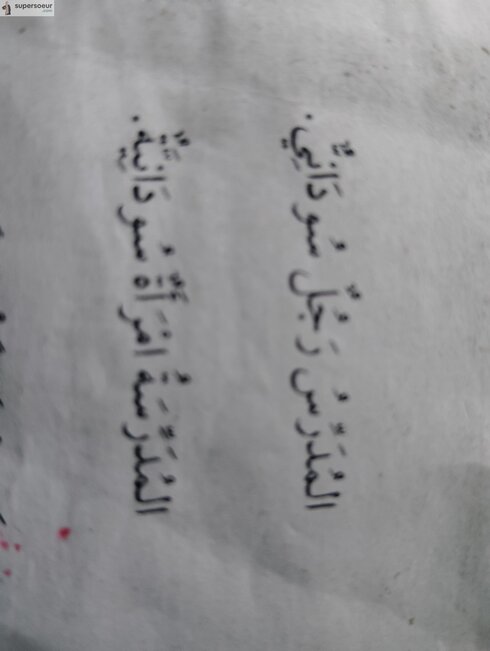 supersoeur
.com
المُدَرِّسُ رَجُلٌ سُودَانِيٌّ.
المُدَرِّسَةُ امْرَأَةٌ سُودَانِيَّةٌ.